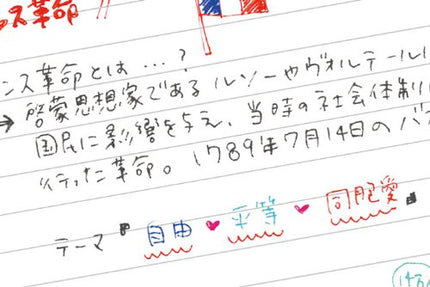 ンス革命
ンス革命とは…?
→啓蒙思想家であるルソーやヴォルテール
国民に影響を与え、当時の社会体制
行った革命。1789年7月14日のバ
テーマ 自由♥平等♥同胞愛
14